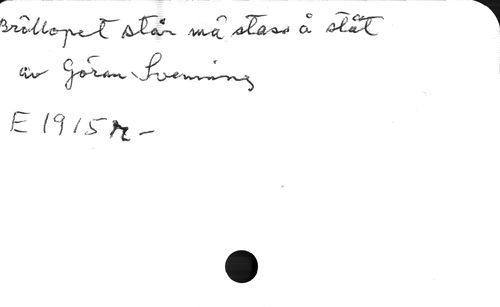 Bröllopet står må stass å ståt
av Göran Svenning
E 1915 r -